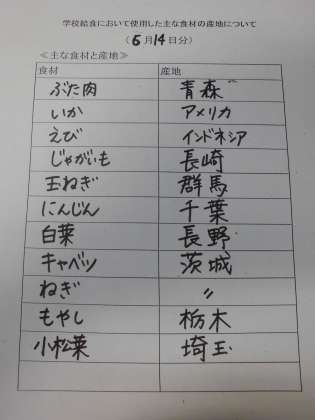 学校給食において使用した主な食材の産地について
(6月14日分)
≪主な食材と産地≫
食材 産地
ぶた肉 青森
いか アメリカ
えび インドネシア
じゃがいも 長崎
玉ねぎ 群馬
にんじん 千葉
白菜 長野
キャベツ 茨城
ねぎ 〃
もやし 栃木
小松菜 埼玉